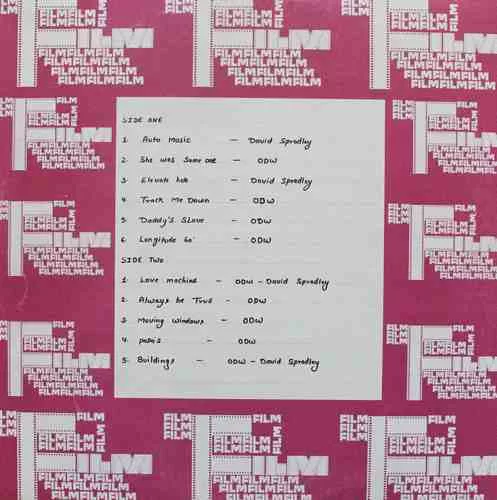 SIDE ONE
1. Auto Music - David Spradley
2. She was Some one - ODW
3. Elevate hob - David Spradley
4. Track Me Down - ODW
5. Daddy's Slave - ODW
6. Longitude 60° - ODW
SIDE TWO
1. Love machine - ODW - David Spradley
2. Always be True - ODW
3. Moving Windows - ODW
4. - ODW
5. Buildings - ODW - David Spradley
FILM
FILM
FILM
FILMFILM
FILMFILM
FILM
FILMFILMFILM
FILMFILMFILM
FILMFILMFILM